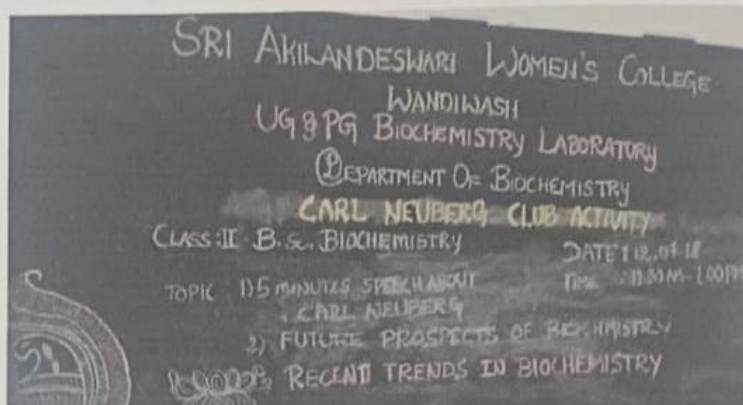 SRI AKILANDESWARI WOMEN'S COLLEGE
WANDIWASH
UG & PG BIOCHEMISTRY LABORATORY
DEPARTMENT OF BIOCHEMISTRY
CARL NEUBERG CLUB ACTIVITY
CLASS: II B.Sc., BIOCHEMISTRY
DATE
TIME
TOPIC 1) 5 MINUTES SPEECH ABOUT
CARL NEUBERG
2) FUTURE PROSPECTS OF
RECENT TRENDS IN BIOCHEMISTRY